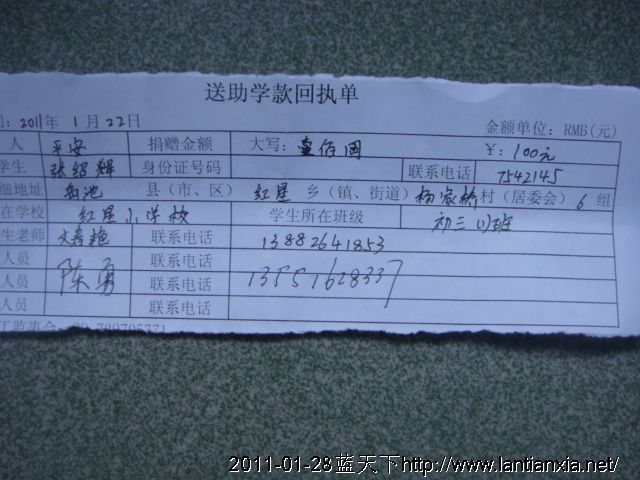 送助学款回执单
: 2011年 1月 22日 金额单位: RMB(元)
人 平安 捐赠金额 大写: 壹佰圆 ¥: 100元
学生 张绍辉 身份证号码 联系电话 7542145
细地址 岳池 县(市、区) 红星 乡(镇、街道) 杨家桥 村(居委会) 6 组
在学校 红星小学校 学生所在班级 初三(1)班
生老师 联系电话 13882641853
人员 陈勇 联系电话 13551628337
人员 联系电话
工监事会 789795371
2011-01-28蓝天下http://www.lantianxia.net/